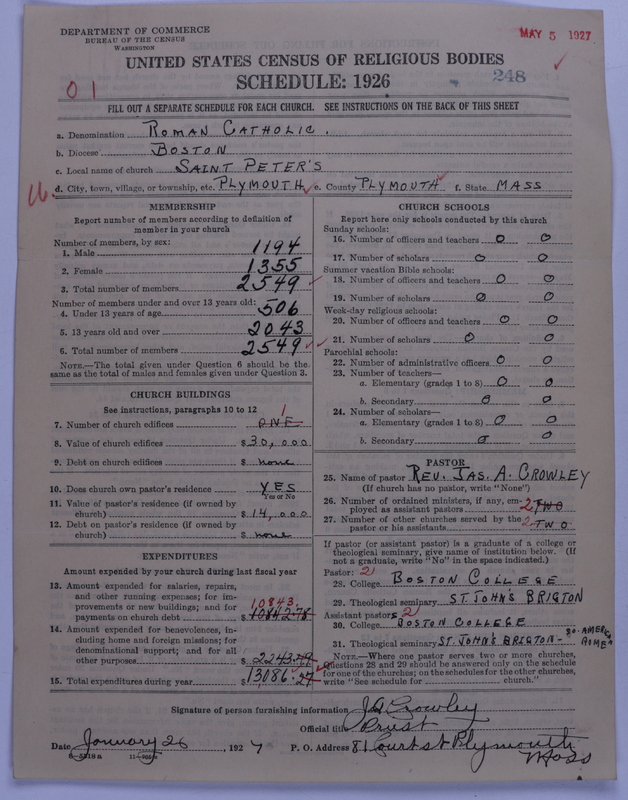 DEPARTMENT OF COMMERCE
BUREAU OF THE CENSUS
WASHINGTON
MAY 5 1927
UNITED STATES CENSUS OF RELIGIOUS BODIES
SCHEDULE: 1926
01
248
FILL OUT A SEPARATE SCHEDULE FOR EACH CHURCH. SEE INSTRUCTIONS ON THE BACK OF THIS SHEET
a. Denomination ROMAN CATHOLIC.
b. Diocese BOSTON
c. Local name of church SAINT PETER'S
d. City, town, village, or township, etc. PLYMOUTH e. County PLYMOUTH f. State MASS
MEMBERSHIP
Report number of members according to definition of
member in your church
Number of members, by sex:
1. Male 1194
2. Female 1355
3. Total number of members 2549
Number of members under and over 13 years old:
4. Under 13 years of age 506
5. 13 years old and over 2043
6. Total number of members 2549
NOTE.—The total given under Question 6 should be the
same as the total of males and females given under Question 3.
CHURCH BUILDINGS
See instructions, paragraphs 10 to 12
7. Number of church edifices ONE 1
8. Value of church edifices $30,000
9. Debt on church edifices $ none
10. Does church own pastor's residence YES
Yes or No
11. Value of pastor's residence (if owned by
church) $14,000
12. Debt on pastor's residence (if owned by
church) $ none
EXPENDITURES
Amount expended by your church during last fiscal year
13. Amount expended for salaries, repairs,
and other running expenses; for im-
provements or new buildings; and for
payments on church debt $10842.78 10843
14. Amount expended for benevolences, in-
cluding home and foreign missions; for
denominational support; and for all
other purposes $2243.49
15. Total expenditures during year $13086.27
CHURCH SCHOOLS
Report here only schools conducted by this church
Sunday schools:
16. Number of officers and teachers 0 0
17. Number of scholars 0 0
Summer vacation Bible schools:
18. Number of officers and teachers 0 0
19. Number of scholars 0 0
Week-day religious schools:
20. Number of officers and teachers 0 0
21. Number of scholars 0 0
Parochial schools:
22. Number of administrative officers 0 0
23. Number of teachers—
a. Elementary (grades 1 to 8) 0 0
b. Secondary 0 0
24. Number of scholars—
a. Elementary (grades 1 to 8) 0 0
b. Secondary 0 0
PASTOR
25. Name of pastor REV. JAS. A. CROWLEY
(If church has no pastor, write "None")
26. Number of ordained ministers, if any, em-
ployed as assistant pastors 2 TWO
27. Number of other churches served by the
pastor or his assistants 2 TWO
If pastor (or assistant pastor) is a graduate of a college or
theological seminary, give name of institution below. (If
not a graduate, write "No" in the space indicated.)
Pastor: 21
28. College BOSTON COLLEGE
29. Theological seminary ST. JOHN'S BRIGTON
Assistant pastors 21
30. College BOSTON COLLEGE
31. Theological seminary ST. JOHN'S BRIGTON - SO. AMERICA ROME
NOTE.—Where one pastor serves two or more churches,
Questions 28 and 29 should be answered only on the schedule
for one of the churches; on the schedules for the other churches,
write "See schedule for church."
Signature of person furnishing information J A Crowley
Official title Priest
Date January 26, 1927 P. O. Address 81 Court st Plymouth
Mass